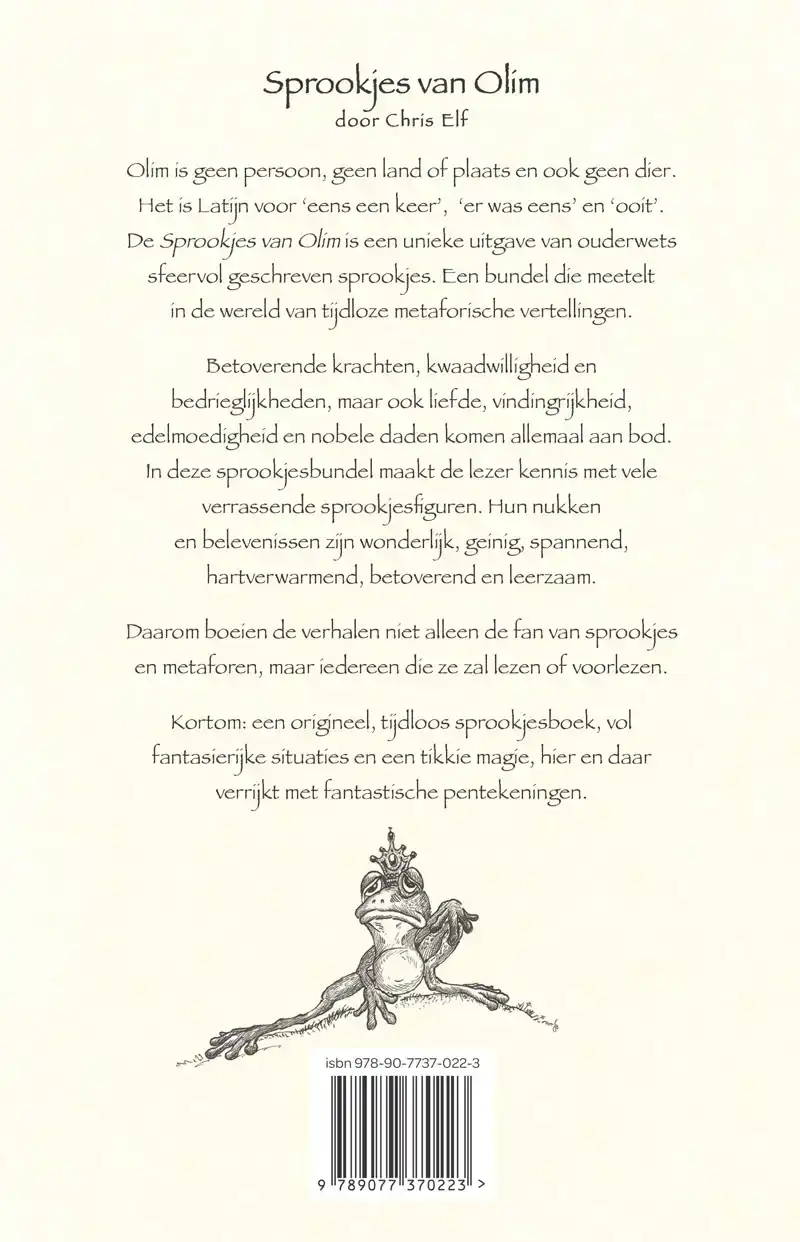 Sprookjes van Olim
door Chris Elf
Olim is geen persoon, geen land of plaats en ook geen dier.
Het is Latijn voor ‘eens een keer’, ‘er was eens’ en ‘ooit’.
De Sprookjes van Olim is een unieke uitgave van ouderwets
sfeervol geschreven sprookjes. Een bundel die meetelt
in de wereld van tijdloze metaforische vertellingen.
Betoverende krachten, kwaadwilligheid en
bedrieglijkheden, maar ook liefde, vindingrijkheid,
edelmoedigheid en nobele daden komen allemaal aan bod.
In deze sprookjesbundel maakt de lezer kennis met vele
verrassende sprookjesfiguren. Hun nukken
en belevenissen zijn wonderlijk, geinig, spannend,
hartverwarmend, betoverend en leerzaam.
Daarom boeien de verhalen niet alleen de fan van sprookjes
en metaforen, maar iedereen die ze zal lezen of voorlezen.
Kortom: een origineel, tijdloos sprookjesboek, vol
fantasierijke situaties en een tikkie magie, hier en daar
verrijkt met fantastische pentekeningen.
isbn 978-90-7737-022-3
9 789077 370223 >